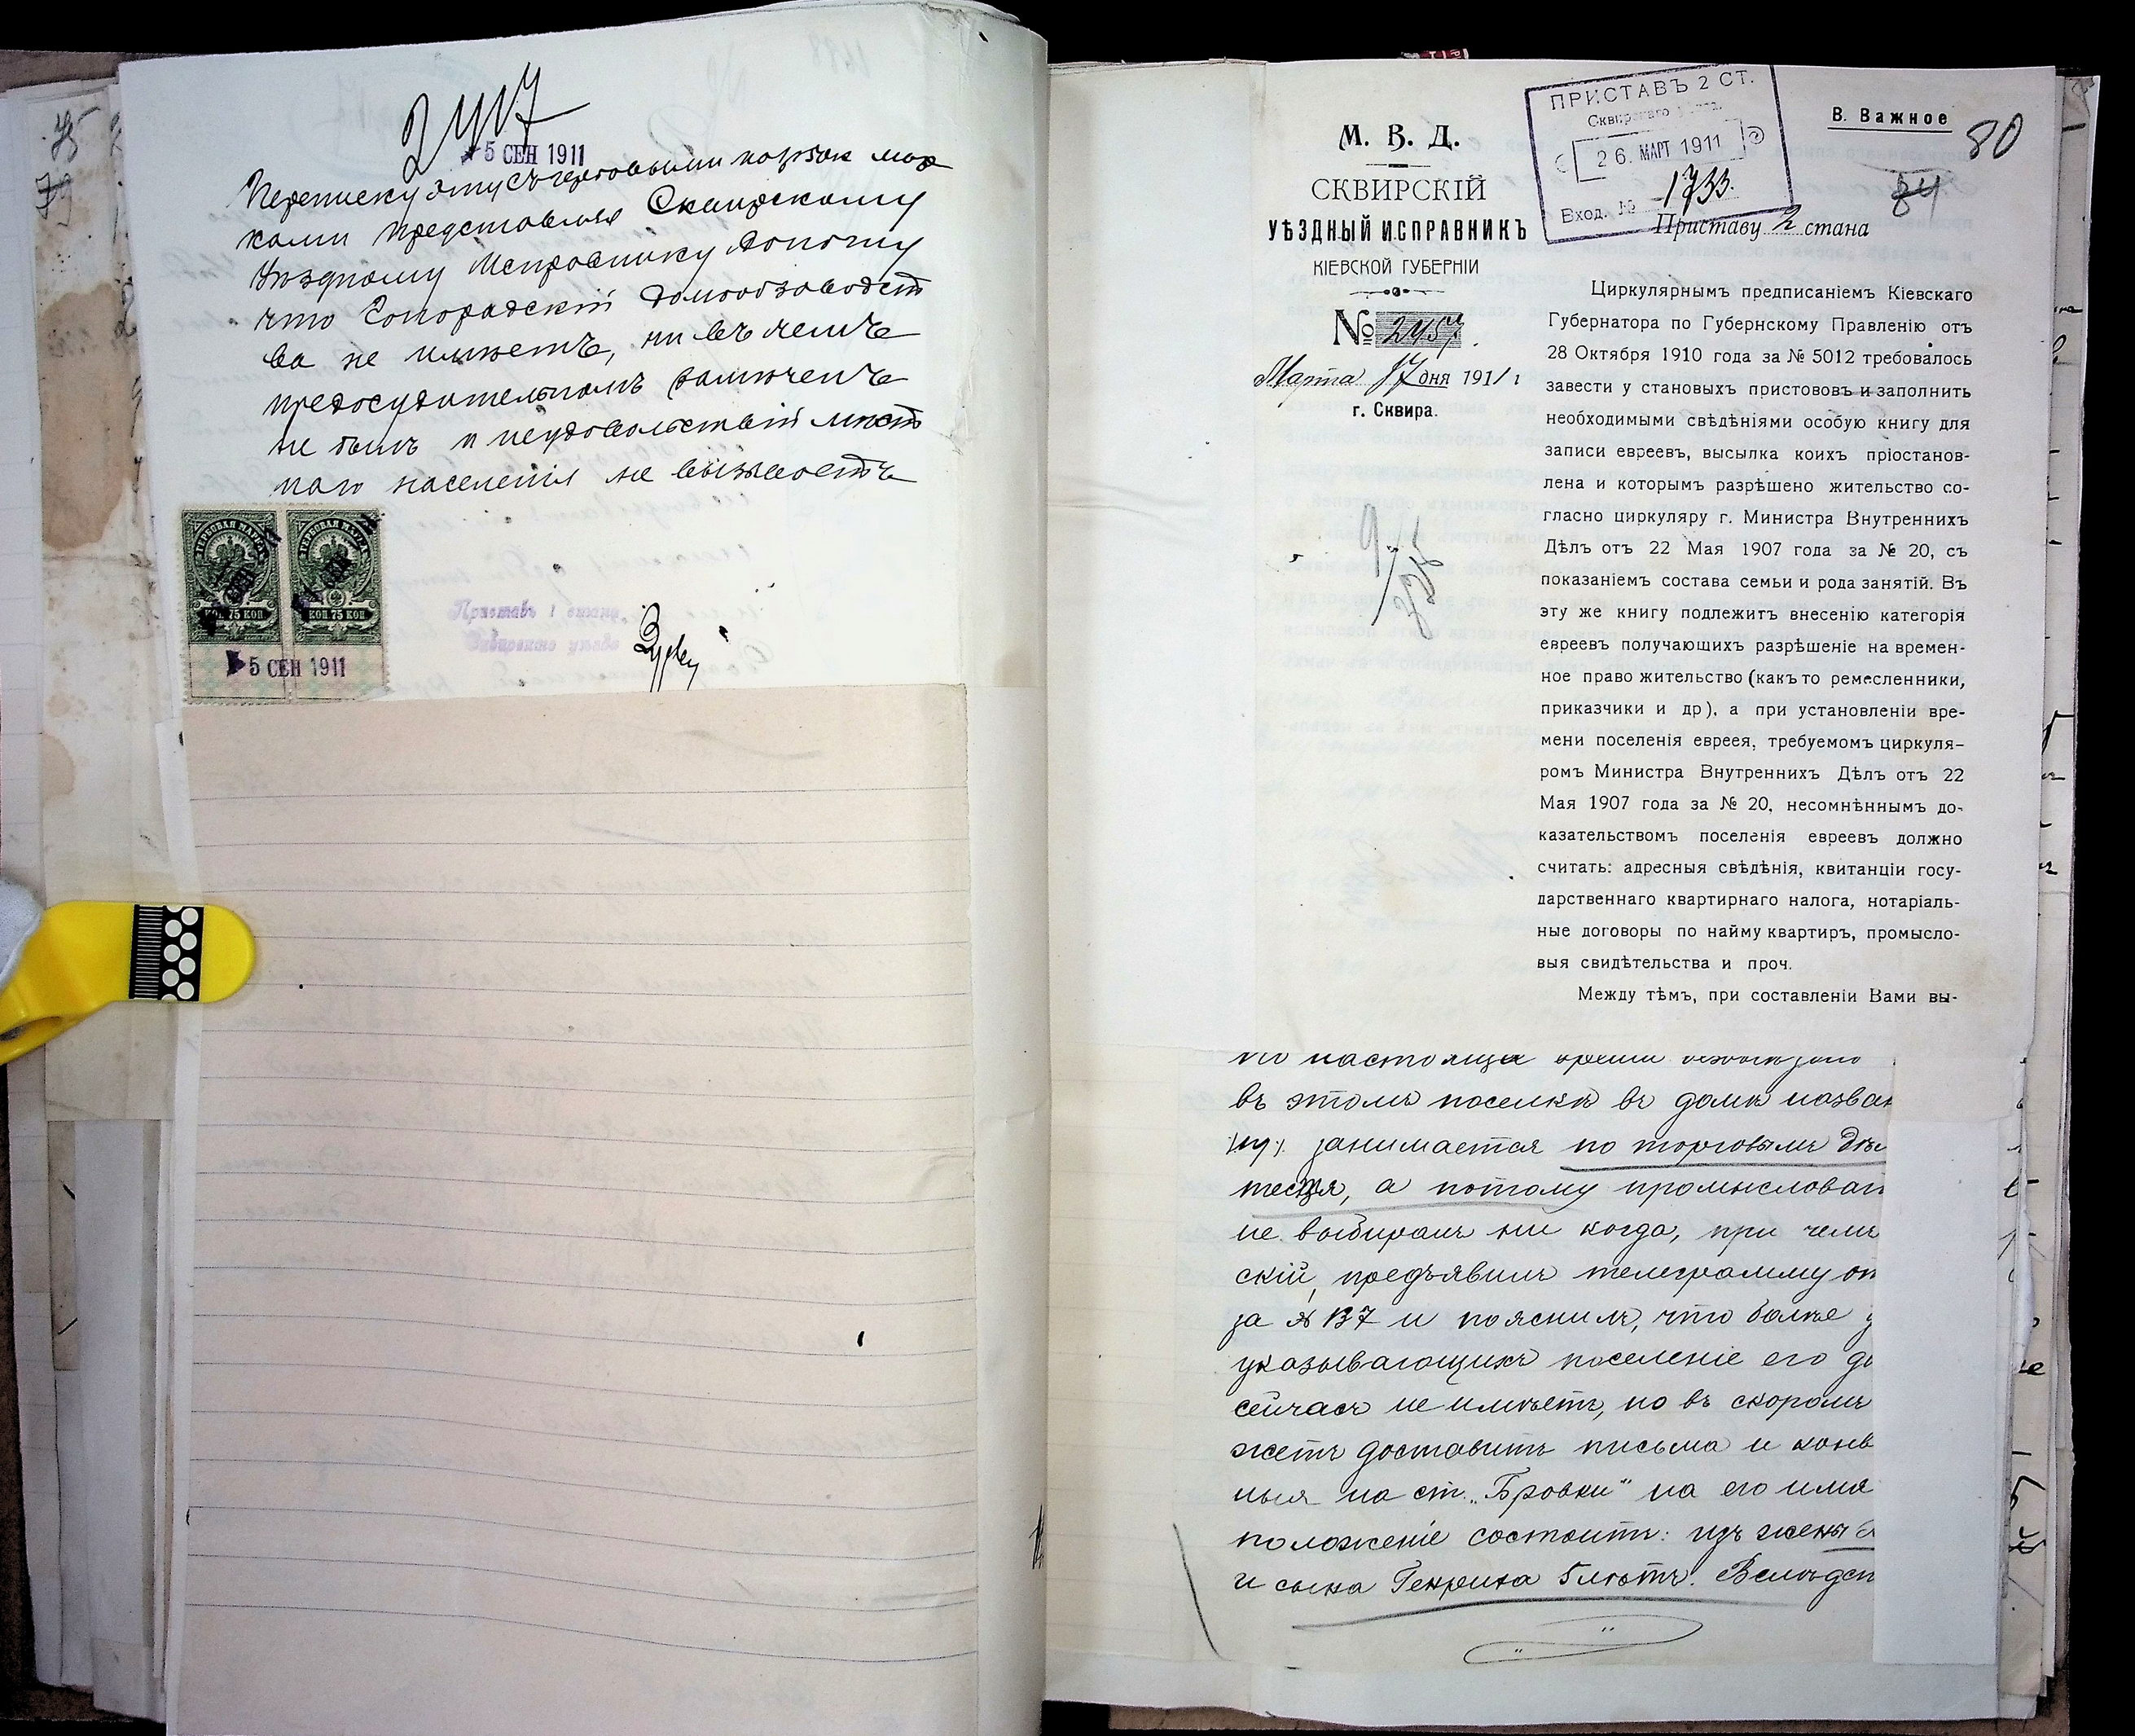 75
79
2417
5 СЕН 1911
Переписку эту съ гербовыми мар
ками представляя Сквирскому
Уѣздному Исправнику доношу
что домообзаводст
ва не имѣетъ, ни въ чемъ
предосудительномъ замѣченъ
не былъ и неудовольствій мѣст
наго населенія не вызываетъ
ГЕРБОВАЯ МАРКА
КОП 75 КОП
ГЕРБОВАЯ МАРКА
КОП 75 КОП
5 СЕН 1911
Приставъ 1 стана,
Сквирскаго уѣзда
М. В. Д.
СКВИРСКІЙ
УѢЗДНЫЙ ИСПРАВНИКЪ
КІЕВСКОЙ ГУБЕРНІИ
№ 2457.
Марта 17 дня 1911 г
г. Сквира.
ПРИСТАВЪ 2 СТ.
Сквирскаго
26. МАРТ 1911
Вход. № 1733.
В. Важное
80
84
Приставу 2 стана
Циркулярнымъ предписаніемъ Кіевскаго
Губернатора по Губернскому Правленію отъ
28 Октября 1910 года за № 5012 требовалось
завести у становыхъ пристововъ и заполнить
необходимыми свѣдѣніями особую книгу для
записи евреевъ, высылка коихъ пріостанов-
лена и которымъ разрѣшено жительство со-
гласно циркуляру г. Министра Внутреннихъ
Дѣлъ отъ 22 Мая 1907 года за № 20, съ
показаніемъ состава семьи и рода занятій. Въ
эту же книгу подлежитъ внесенію категорія
евреевъ получающихъ разрѣшеніе на времен-
ное право жительство (какъ то ремесленники,
приказчики и др), а при установленіи вре-
мени поселенія евреея, требуемомъ циркуля-
ромъ Министра Внутреннихъ Дѣлъ отъ 22
Мая 1907 года за № 20, несомнѣннымъ до-
казательствомъ поселенія евреевъ должно
считать: адресныя свѣдѣнія, квитанціи госу-
дарственнаго квартирнаго налога, нотаріаль-
ные договоры по найму квартиръ, промысло-
выя свидѣтельства и проч.
Между тѣмъ, при составленіи Вами вы-
по настояще время
въ этомъ поселкѣ въ домѣ назван
занимается по торговымъ дѣл
тестя, а потому промысловаг
не выбиралъ ни когда, при чемъ
скій, предъявилъ телеграмму от
за № 137 и пояснилъ, что болѣе у
указывающихъ поселеніе его до
сейчасъ не имѣетъ, но въ скоромъ
жетъ доставить письма и конв
ныя на ст. „Бровки" на его имя
положеніе состоитъ: изъ жены
и сына Генриха 5 лѣтъ. Вслѣдст